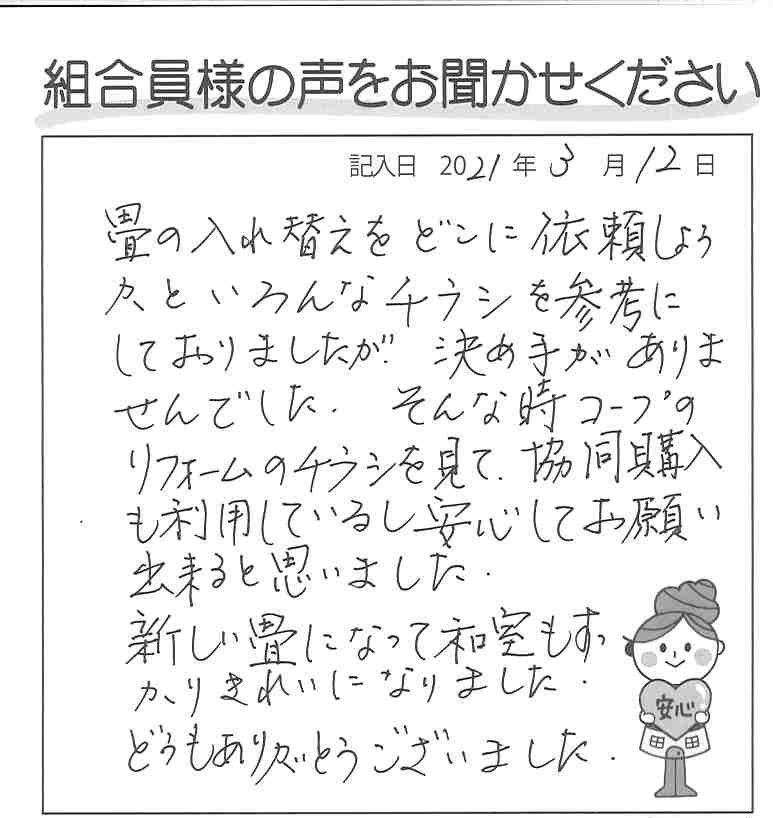 組合員様の声をお聞かせください
記入日 2021年3月12日
畳の入れ替えをどこに依頼しよう
かといろんなチラシを参考に
しておりましたが、決め手がありま
せんでした。そんな時コープの
リフォームのチラシを見て、協同購入
も利用しているし安心してお願い
出来ると思いました。
新しい畳になって和室もすっ
かりきれいになりました。
どうもありがとうございました。
安心